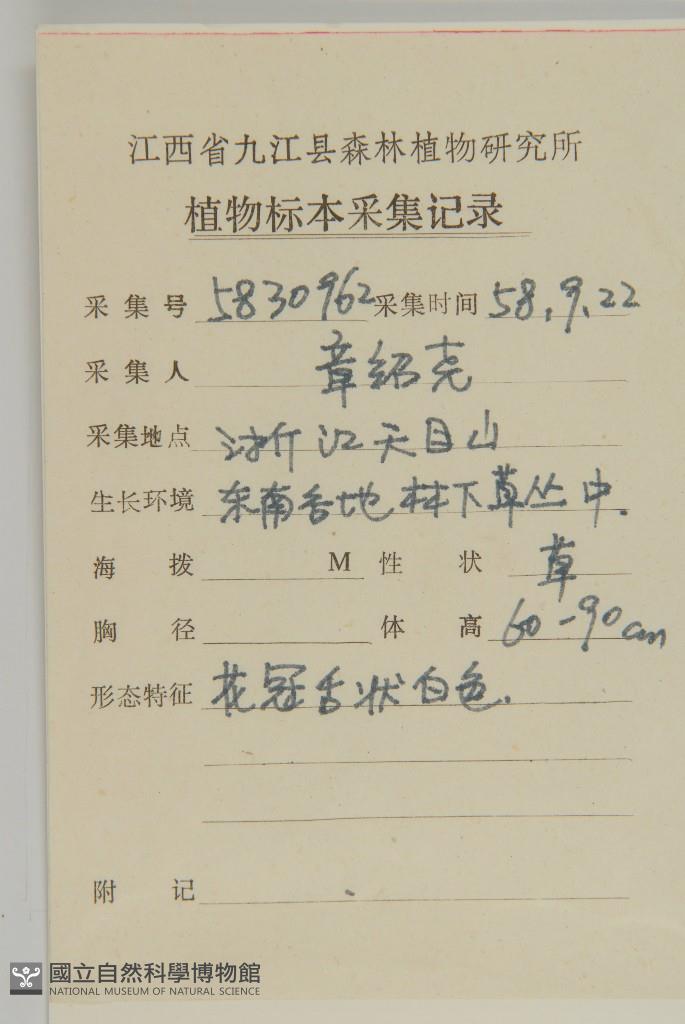 江西省九江县森林植物研究所
植物标本采集记录
采集号 5830962 采集时间 58.9.22
采集人 章绍尧
采集地点 浙江天目山
生长环境 东南各地林下草丛中.
海拨 M 性状 草
胸径 体高 60-90cm
形态特征 花冠舌状白色.
附记
國立自然科學博物館
NATIONAL MUSEUM OF NATURAL SCIENCE